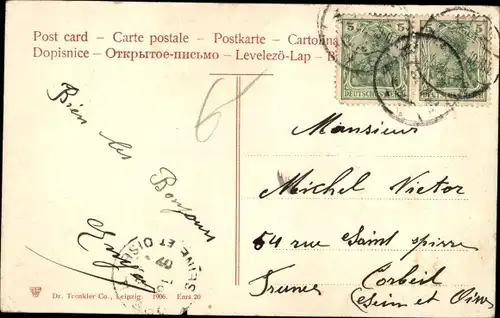 Post card – Carte postale – Postkarte – Cartolina
Dopisnice – Открытое-письмо – Levelező-Lap –
5 5 5
DEUTSCHES REICH
6
Bien les Bonjours
Monsieur
Michel Victor
54 rue Saint spirre
Corbeil
(Sein et Oise
SEINE ET OISE
09
Dr. Trenkler Co., Leipzig. 1906. Ears 20